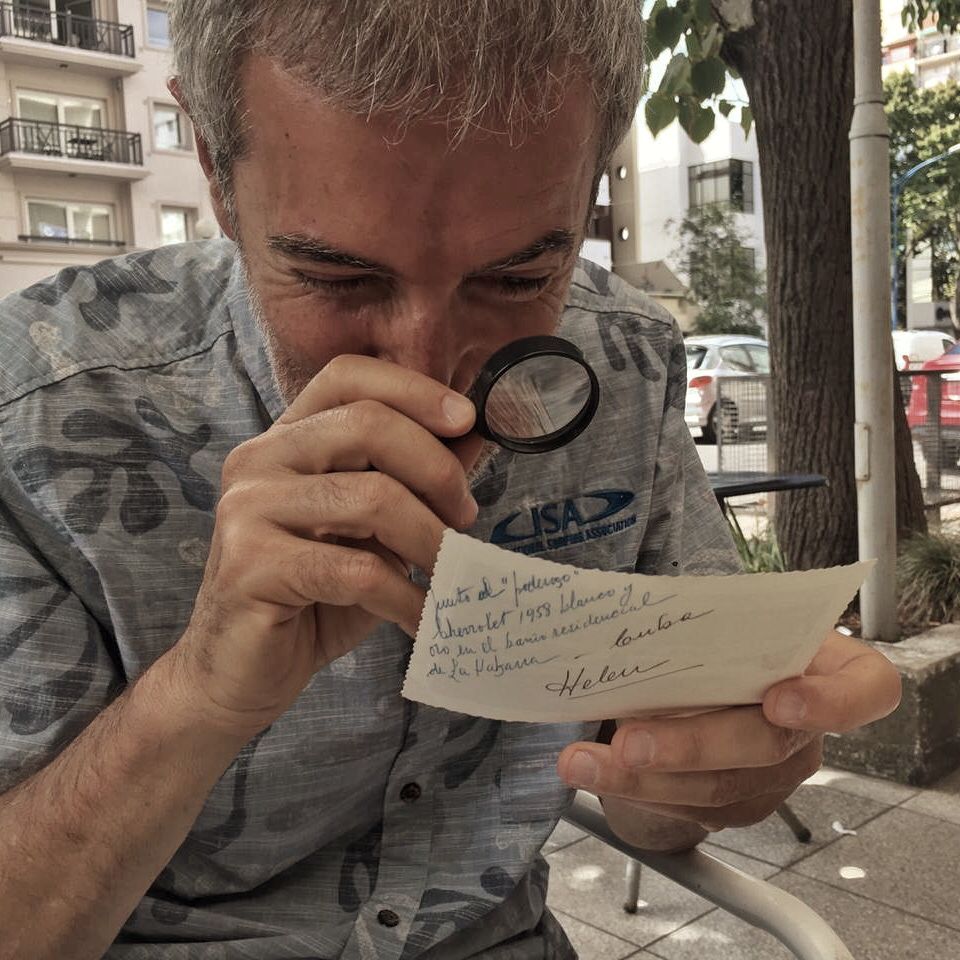 ISA
INTERNATIONAL SURFING ASSOCIATION
junto al "poderoso"
Chevrolet 1958 blanco y
oro en el barrio residencial
de La Habana - Cuba
Helen